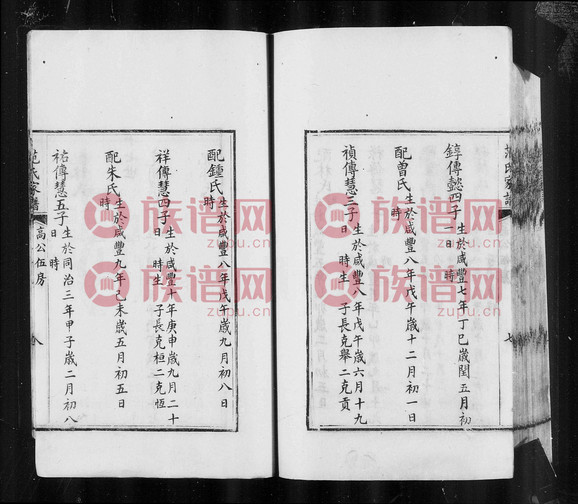 錞傳懿四子生於咸豐七年丁巳歲閏五月初
一日 時
配曾氏生於咸豐八年戊午歲十二月初一日
時
禎傳慧三子生於咸豐八年戊午歲六月十九
日 時生 子長克舉二克貢
配鍾氏生於咸豐八年戊午歲九月初八日
時
祥傳慧四子生於咸豐十年庚申歲九月二十
日 時生 子長克桓二克恆
配朱氏生於咸豐九年己未歲五月初五日
時
祐傳慧五子生於同治三年甲子歲二月初八
日 時
范氏家譜
高公伍房
族谱网
zupu.cn
族谱网
zupu.cn
族谱网
zupu.cn
族谱网
zupu.cn